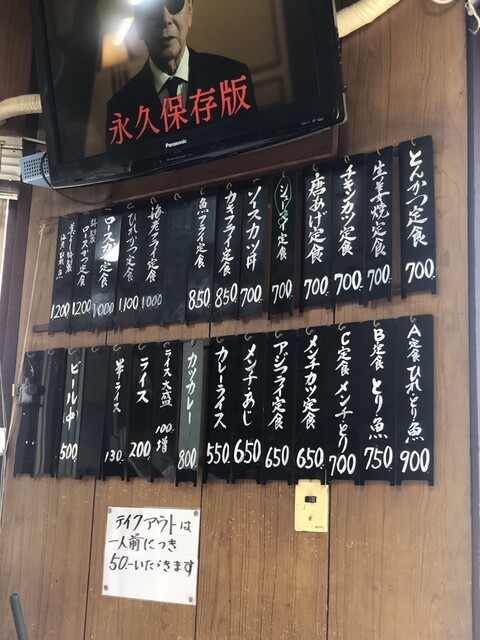 永久保存版
Panasonic
とんかつ定食 700
生姜焼定食 700
チキンカツ定食 700
唐あげ定食 700
定食 700
ソースカツ丼 700
カキフライ定食 850
魚フライ定食 850
海老フライ定食 1000
ひれかつ定食 1,100
ロースカツ定食 1000
特製ロースかつ定食 1200
1200
A定食 ひれとり魚 900
B定食 とり魚 750
C定食 メンチとり 700
メンチカツ定食 650
アジフライ定食 650
メンチあじ 650
カレーライス 550
カツカレー 800
ライス大盛 100増
ライス 200
半ライス 130
ビール中 500
テイクアウトは
一人前につき
50.-いただきます